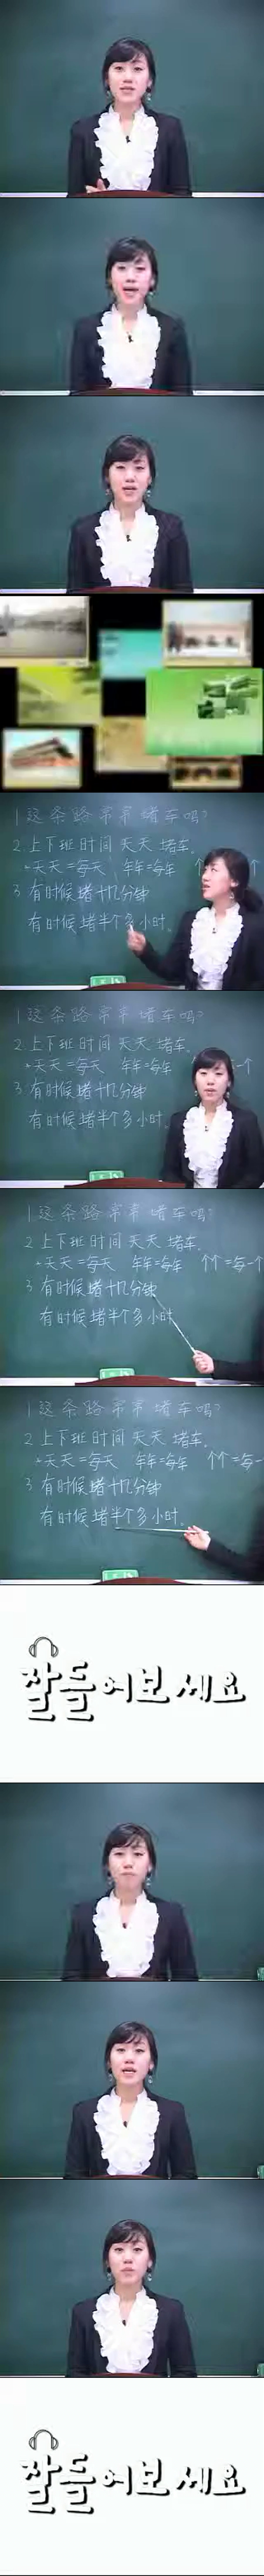 1 这条路常常堵车吗?
2 上下班时间天天堵车。
*天天=每天 年年=每年 个
3 有时候堵十几分钟
有时候堵半个多小时。
1 这条路常常堵车吗?
2 上下班时间天天堵车。
*天天=每天 年年=每年 一个
3 有时候堵十几分钟
有时候堵半个多小时。
1 这条路常常堵车吗?
2 上下班时间天天堵车。
*天天=每天 年年=每年 个个=每一个
3 有时候堵十几分钟
有时候堵半个多小时
1 这条路常常堵车吗?
2 上下班时间天天堵车。
*天天=每天 年年=每年 个个=每一
3 有时候堵十几分钟
有时候堵半个多小时。
잘 들어보세요
잘 들어보세요